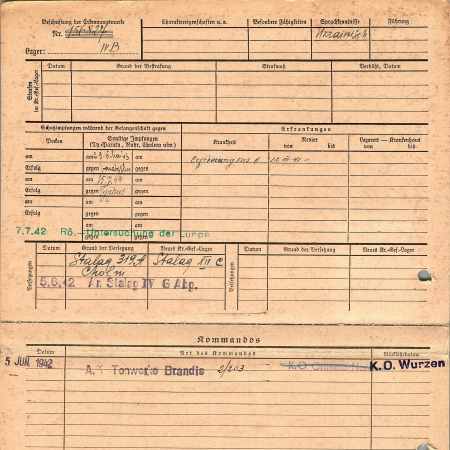 Beschriftung der Erkennungsmarke
Charaktereigenschaften u. a.
Besondere Fähigkeiten
Sprachkenntnisse
Führung
Nr. 156827
Ukrainisch
Lager: IV B
Strafen im Kr.-Gef.-Lager
Datum
Grund der Bestrafung
Strafmaß
Verbüßt, Datum
Schutzimpfungen während der Gefangenschaft gegen
Erkrankungen
Pocken
Sonstige Impfungen (Ty.-Paraty., Ruhr, Cholera usw.)
Krankheit
Revier
von bis
Lazarett – Krankenhaus
von bis
am
am
am
Erfolg
gegen
gegen
am
am 15.7.44
am
Erfolg
gegen
gegen
am
am
am
Erfolg
gegen
gegen
am
am
gegen
gegen
7.7.42 Rö.-Untersuchung der Lunge
Versetzungen
Datum
Grund der Versetzung
Neues Kr.-Gef.-Lager
Versetzungen
Datum
Grund der Versetzung
Neues Kr.-Gef.-Lager
Stalag 319 A Stalag XII C
Cholm
5.6.42 An Stalag IV G Abg.
Kommandos
Datum
Art des Kommandos
Rückkehrdatum
5 JUN. 1942
A.K Tonwerke Brandis 2/203
K.O. Wurzen